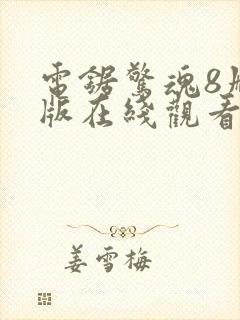 電鋸驚魂8
版在綫觀看
姜雪梅